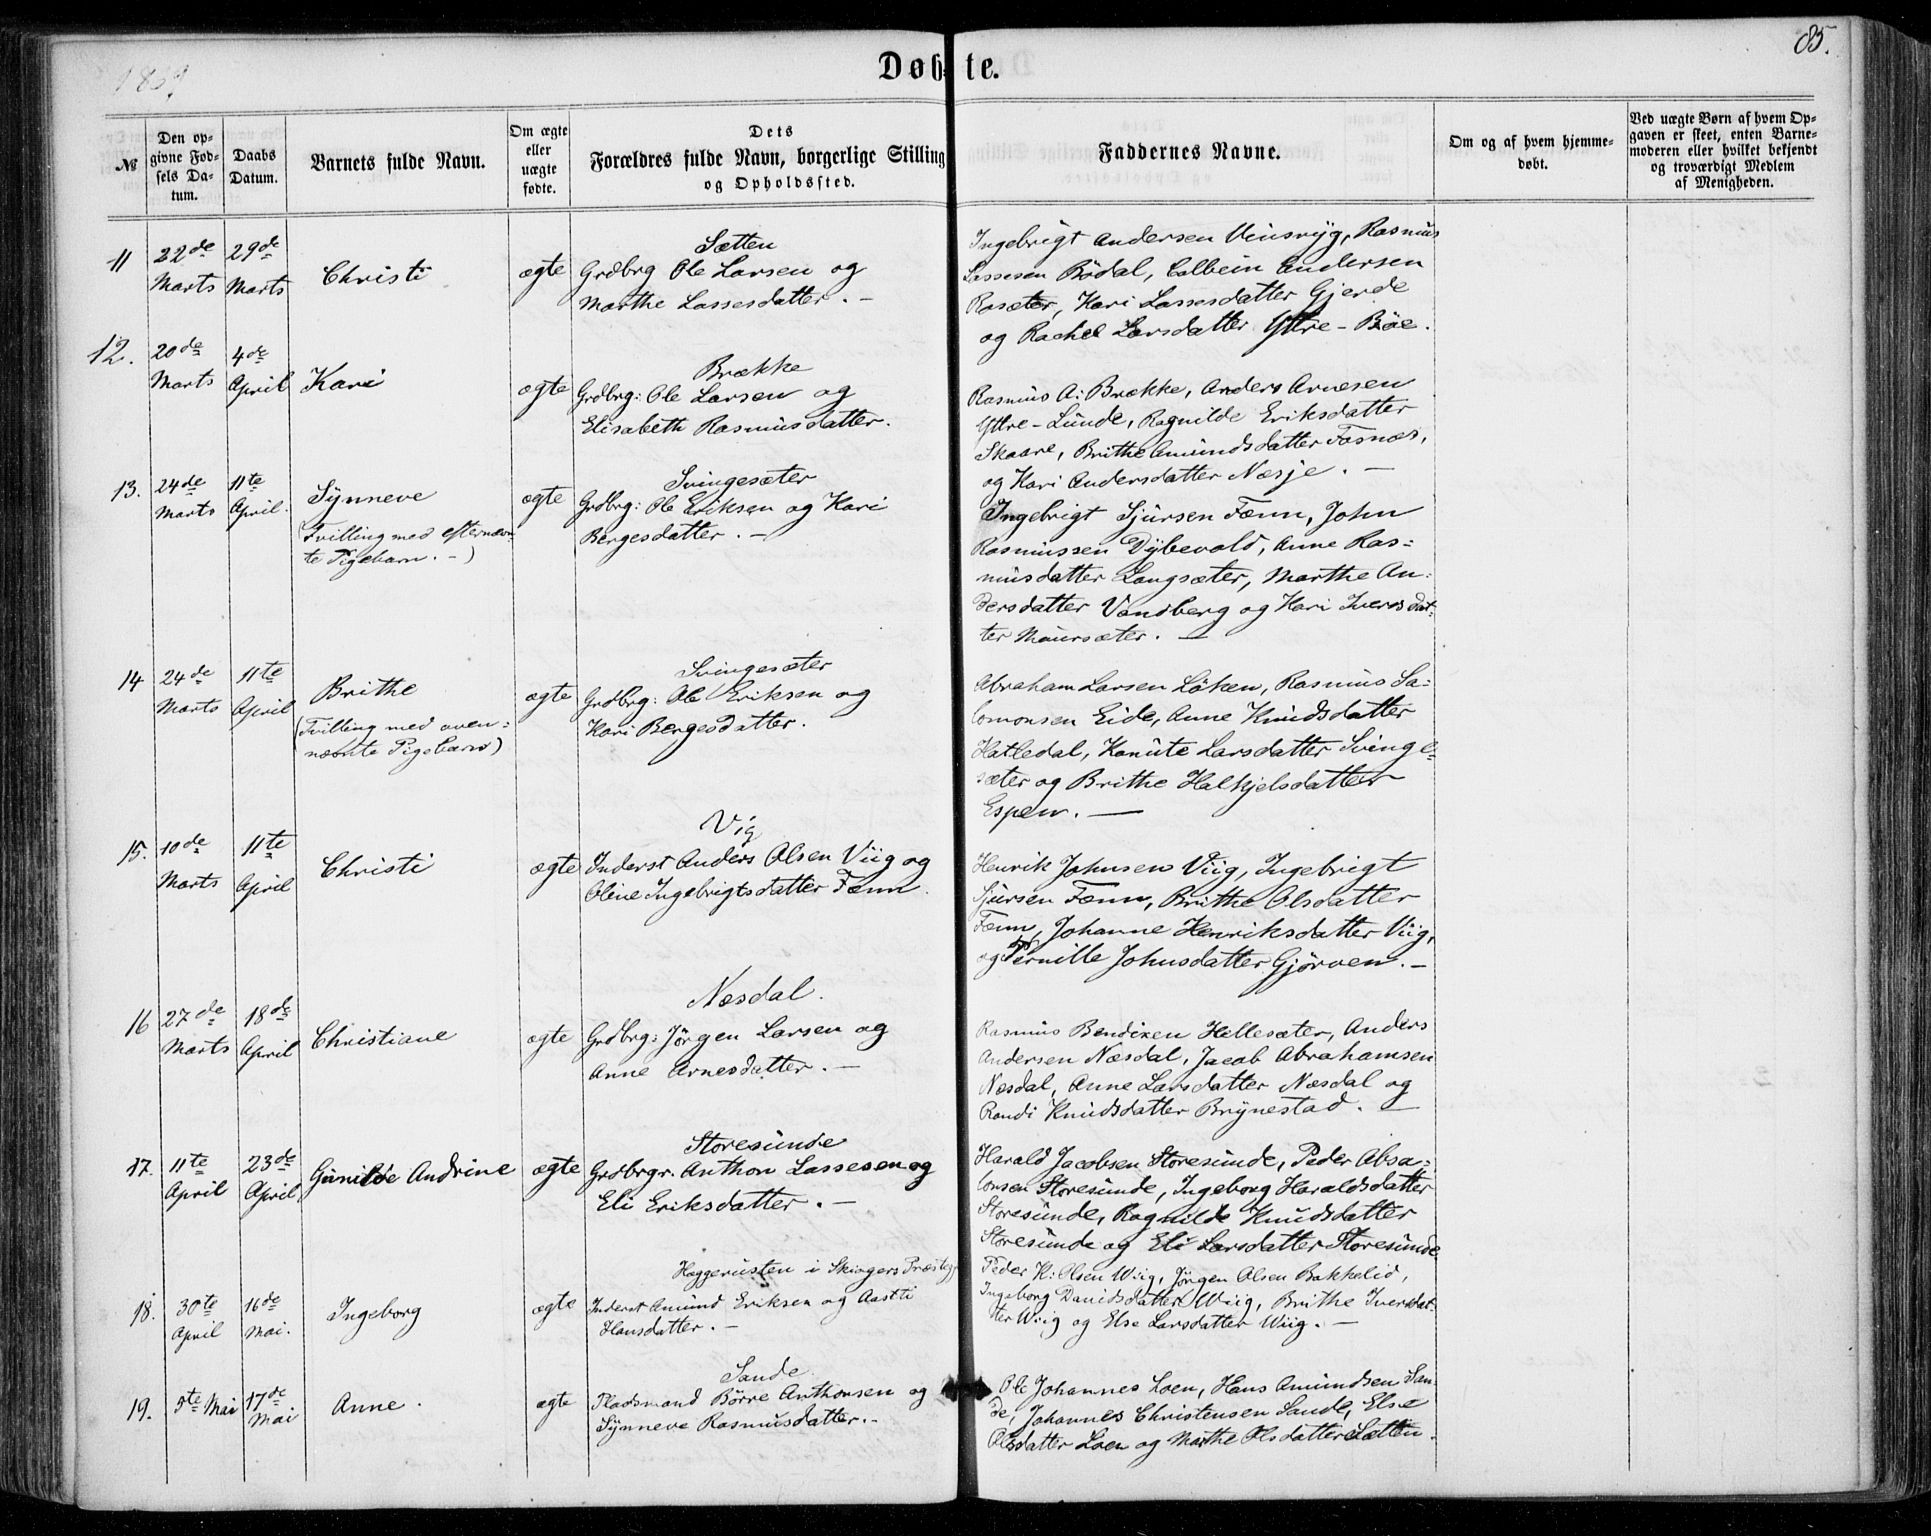 1869
Døbte.
85.
№
Den op-
givne Fød-
sels Da-
tum.
Daabs
Datum.
Barnets fulde Navn.
Om ægte
eller
uægte
fødte.
Dets
Forældres fulde Navn, borgerlige Stilling
og Opholdssted.
Faddernes Navne.
Om og af hvem hjemme-
døbt.
Ved uægte Børn af hvem Op-
gaven er skeet, enten Barne-
moderen eller hvilket bekjendt
og troværdigt Medlem
af Menigheden.
11
22de
Marts
29de
Marts
Christi
ægte
Sætten
Grdbrg Ole Larsen og
Marthe Lassesdatter. —
Ingebrigt Andersen Vinsryg, Rasmus
Lassesen Bødal, Colbein Andersen
Raseter, Kari Lassesdatter Gjerde
og Rachel Larsdatter Yttre-Bøe.
12.
20de
Marts
4de
April
Kari
ægte
Brække
Grdbrg: Ole Larsen og
Elisabeth Rasmusdatter.
Rasmus A: Brække, Anders Arnesen
Yttre-Lunde, Ragnilde Eriksdatter
Skaare, Brithe Amundsdatter Fosnæs,
og Kari Andersdatter Næsje. —
13.
24de
Marts
11te
April.
Synneve
(Tvilling med efternævn-
te Pigebarn. —)
ægte
Svingesæter
Grdbrg: Ole Eriksen og Kari
Bergesdatter. —
Ingebrigt Sjursen Fænn, John
Rasmussen Dybevold, Anne Ras-
musdatter Langsæter, Marthe An-
dersdatter Vandberg og Kari Iversdat-
ter Maursæter. —
14
24de
Marts
11te
April
Brithe
(Tvilling med oven-
nævnte Pigebarn)
ægte
Svingesæter
Grdbrg: Ole Eriksen og
Kari Bergesdatter.
Abraham Larsen Løken, Rasmus Sa-
lomonsen Eide, Anne Knudsdatter
Hatledal, Kanute Larsdatter Svinge-
sæter og Brithe Halkjelsdatter
Espen. —
15.
10de
Marts
11te
April
Christi
ægte
Vig
Inderst Anders Olsen Viig og
Oline Ingebrigtsdatter Fænn.
Henrik Johnsen Viig, Ingebrigt
Sjursen Fænn, Brithe Olsdatter
Fænn, Johanne Henriksdatter Viig,
og Pernille Johnsdatter Gjørven. —
16
27de
Marts
18de
April
Christiane
ægte
Næsdal.
Grdbrg: Jörgen Larsen og
Anne Arnesdatter. —
Rasmus Bendixen Hellesæter, Anders
Andersen Næsdal, Jacob Abrahamsen
Næsdal, Anne Larsdatter Næsdal og
Randi Knudsdatter Brynestad. —
17.
11te
April
23de
April
Gunilde Andrine
ægte
Storesunde
Grdbrgr. Anthon Lassesen og
Eli Eriksdatter. —
Harald Jacobsen Storesunde, Peder Absa-
lonsen Storesunde, Ingeborg Haraldsdatter
Storesunde, Ragnilde Knudsdatter
Storesunde og Eli Larsdatter Storesunde
18.
30te
April
16de
Mai.
Ingeborg
ægte
Haggerusten i Skiagers Præsteg.
Inderst Amund Eriksen og Aasti
Hansdatter. —
Peder K: Olsen Wiig, Jörgen Olsen Bakkelid,
Ingeborg Davidsdatter Wiig, Brithe Iversdat-
ter Wiig og Else Larsdatter Wiig. —
19.
5te Mai
17de
Mai
Anne.
ægte
Sande.
Pladsmand Börre Anthonsen og
Synneve Rasmusdatter. -
Ole Johannes Loen, Hans Amundsen San-
de, Johannes Christensen Sande, Else
Olsdatter Loen og Marthe Olsdatter Sætten.